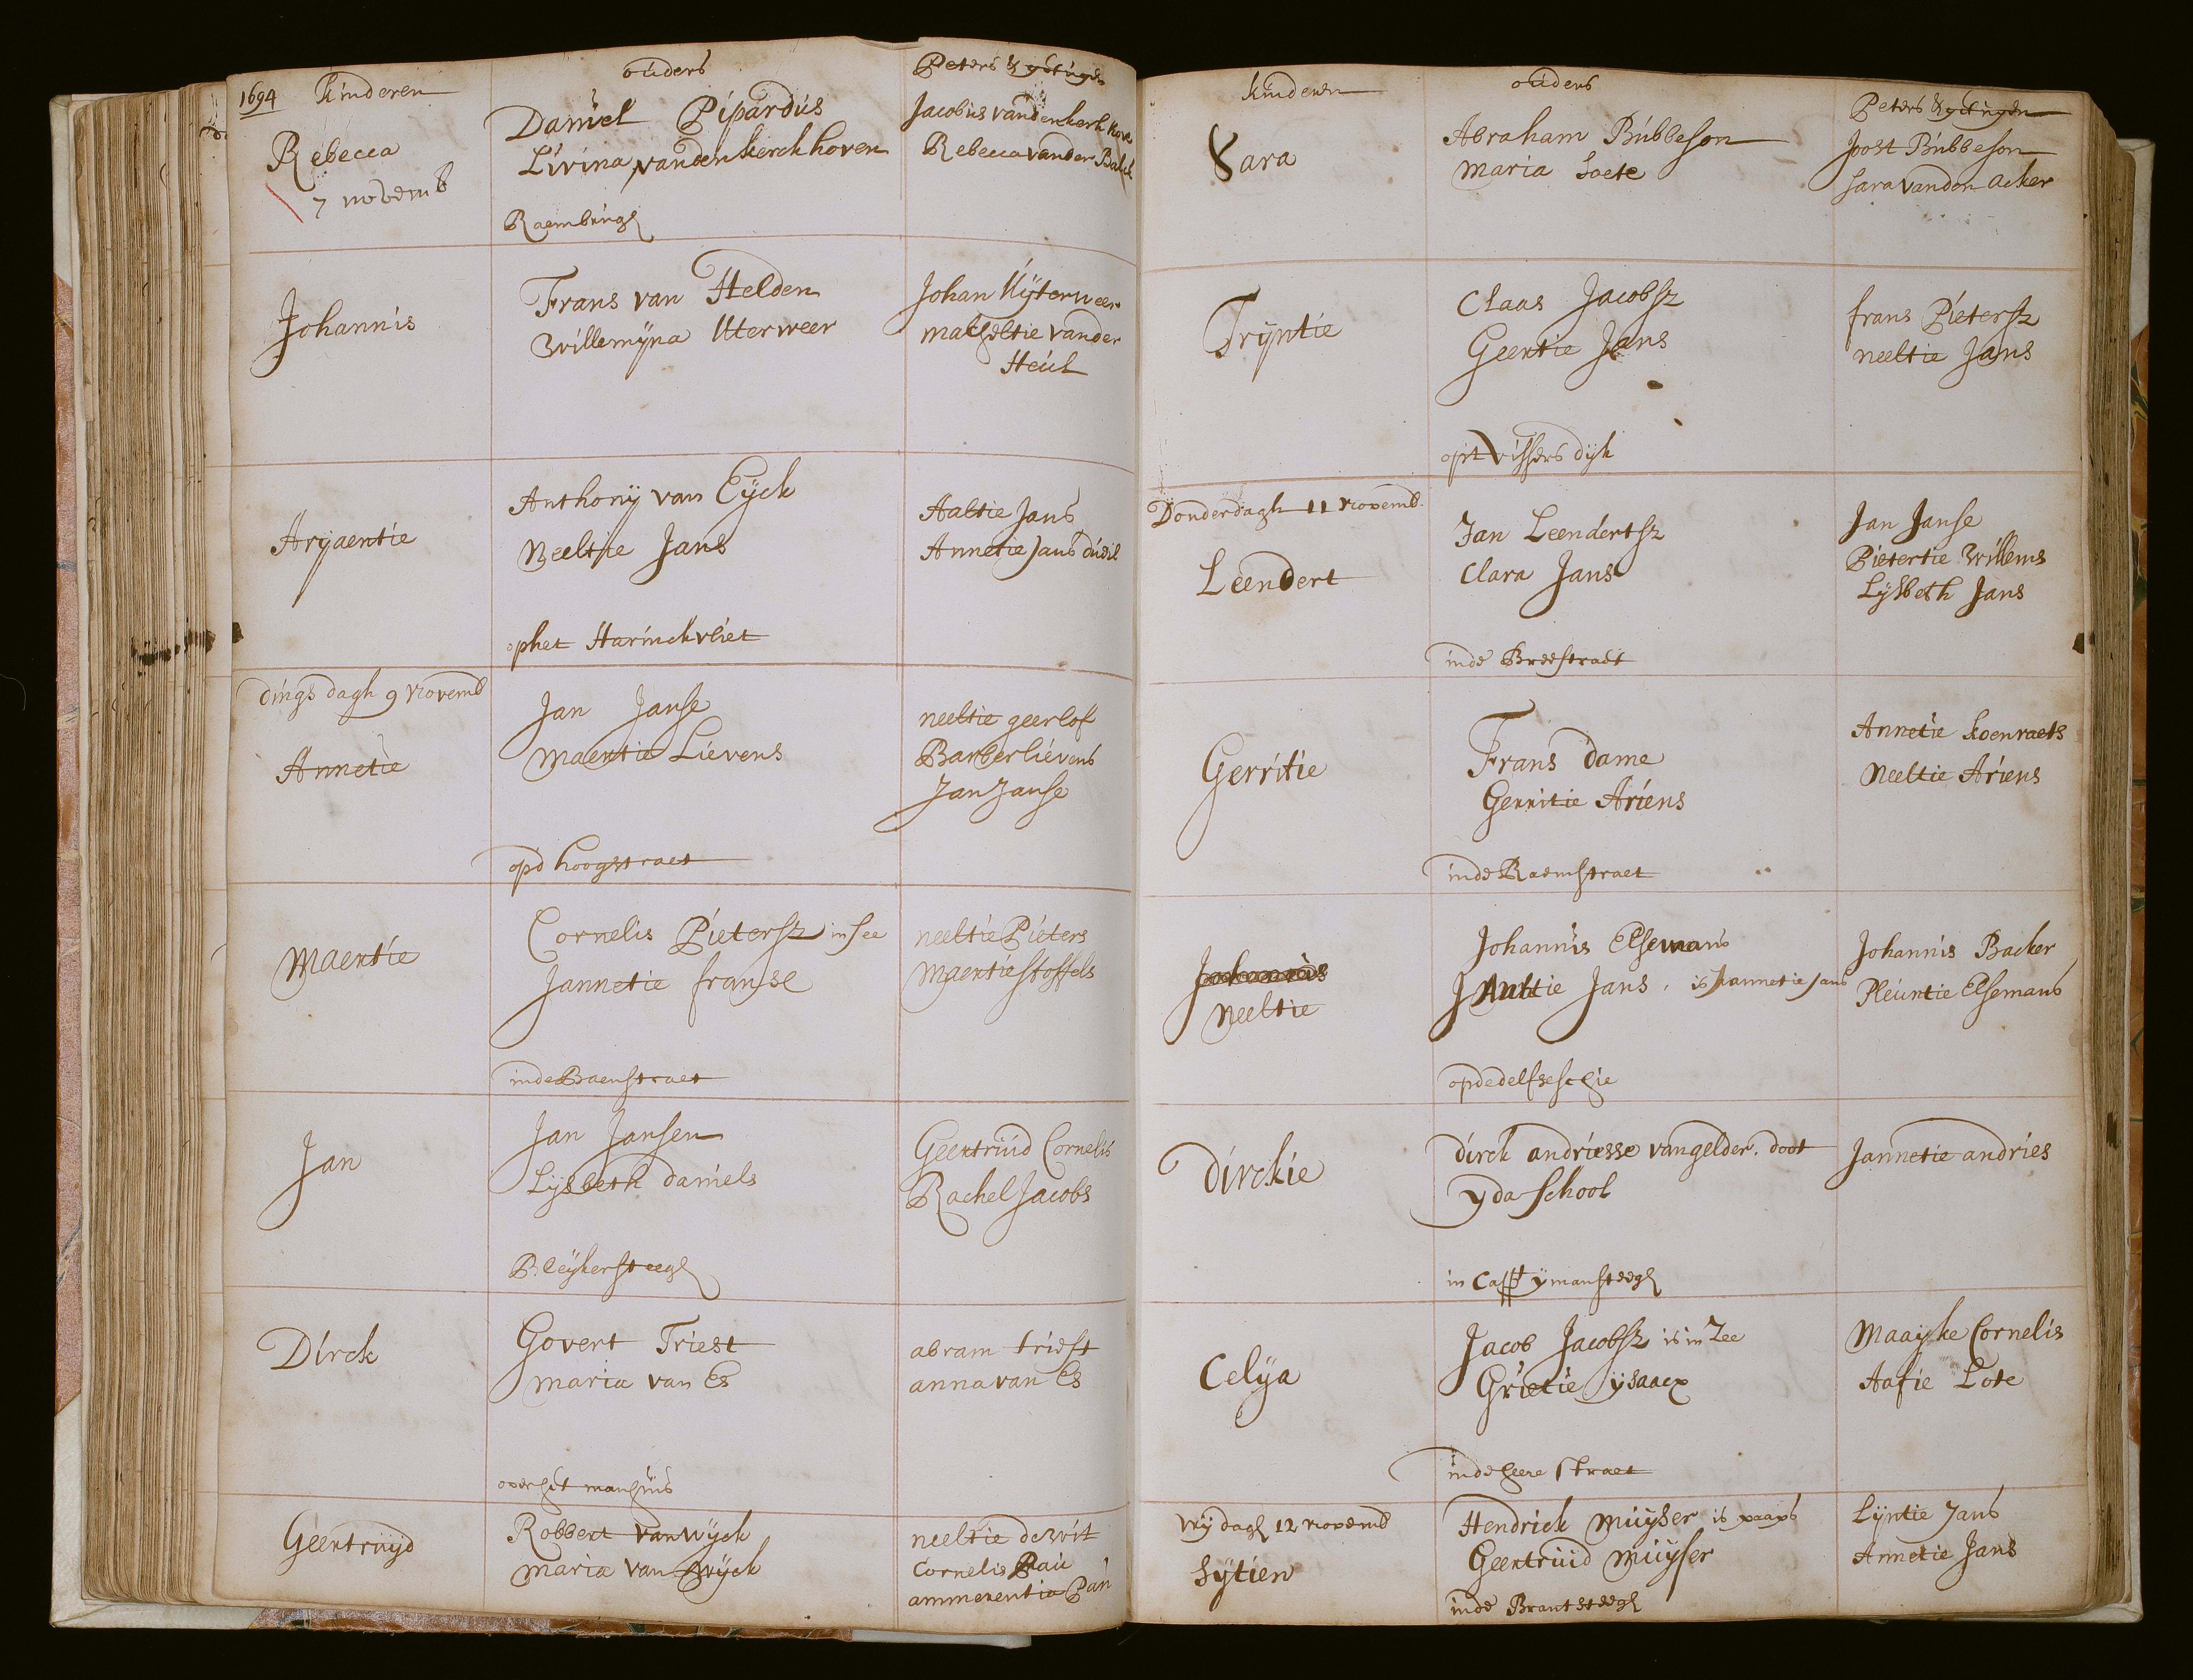 1694 kinderen
ouders
Peters & getuygen
Rebecca
7 novemb
Daniel Pipardus
Livina vanden kerckhoven
Raembrugh
Jacobus vanden kerkhove
Rebecca vander
Johannis
Frans van Helden
Willemÿna Uterweer
Johan Uÿterweer
Machteltie vander
Heul
Arÿaentie
Anthonÿ van Eÿck
Neeltie Jans
op het Harinckvliet
Aaltie Jans
Annetie Jans duvil
dingsdagh 9 novemb
Annetie
Jan Janse
Maertie Lievens
opd hoogstraet
neeltie geerlof
Barber lievens
Jan Janse
Maertie
Cornelis Pietersz in see
Jannetie franse
inde Baenstraet
neeltie Pieters
Maertie stoffels
Jan
Jan Jansen
Lysbeth daniels
Bleÿkersteegh
Geertruid Cornelis
Rachel Jacobs
Dirck
Govert Triest
maria van Es
over het manhuis
abram triest
anna van Es
Geertruÿd
Robbert van wÿck
maria van wÿck
neeltie de wit
Cornelis Pau
ammerentia Pau
kinderen
ouders
Peters & getuygen
Sara
Abraham Bubbeson
Maria Soete
Joost Bubbeson
Sara vanden Acker
Trÿntie
Claas Jacobsz
Geertie Jans
opt Vissers dÿk
frans Pietersz
neeltie Jans
Donderdagh 11 novemb.
Leendert
Jan Leendertsz
Clara Jans
inde Breestraet
Jan Janse
Pietertie Willems
Lÿsbeth Jans
Gerritie
Frans dame
Gerritie Ariens
inde Raemstraet
Annetie koenraets
Neeltie Ariens
Johannis
Neeltie
Johannis Elsemans
Jans, is Jannetie Jans
op de delfse schie
Johannis Backer
Pleuntie Elsemans
Dirckie
dirck andriesse van gelder. doot
yda School
in ÿmansteegh
Jannetie andries
Celÿa
Jacob Jacobsz is in Zee
Grietie ÿsaacx
inde heere straet
Maaÿke Cornelis
Aafie Lote
vrÿdagh 12 novemb
Sÿtien
Hendrick Muÿser is paaps
Geertruid Muÿser
inde Brantsteegh
Lÿntie Jans
Annetie Jans